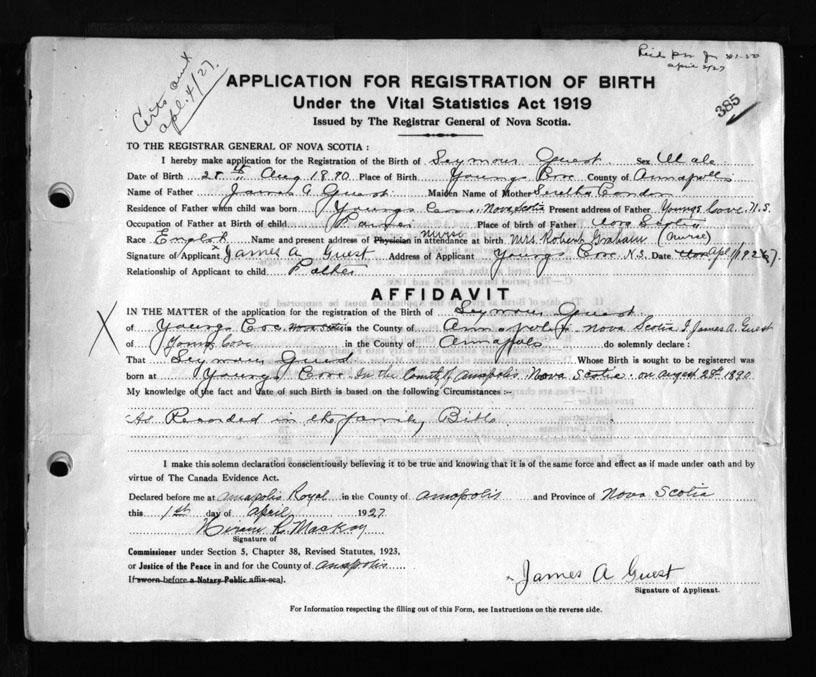 april 2/27
Certs sent
apl. 4/27.
385
APPLICATION FOR REGISTRATION OF BIRTH
Under the Vital Statistics Act 1919
Issued by The Registrar General of Nova Scotia.
TO THE REGISTRAR GENERAL OF NOVA SCOTIA:
I hereby make application for the Registration of the Birth of Seymour Guest Sex Male
Date of Birth 28th Aug 1890 Place of Birth Youngs Cove County of Annapolis
Name of Father James A Guest Maiden Name of Mother Condon
Residence of Father when child was born Youngs Cove, Nova Scotia Present address of Father Youngs Cove, N.S.
Occupation of Father at Birth of child Place of birth of Father Nova Scotia
Race English Name and present address of Physician nurse in attendance at birth Mrs Robert Graham (nurse)
Signature of Applicant James A Guest Address of Applicant Youngs Cove N.S. Date Apl 1 1927.
Relationship of Applicant to child Father
AFFIDAVIT
IN THE MATTER of the application for the registration of Birth of Seymour Guest
of Youngs Cove Nova Scotia in the County of Annapolis Nova Scotia I, James A. Guest
of Youngs Cove in the County of Annapolis do solemnly declare:
That Seymour Guest Whose Birth is sought to be registered was
born at Youngs Cove. In the County of Anapolis Nova Scotia on August 28th 1890
My knowledge of the fact and date of such Birth is based on the following Circumstances:—
As Recorded in the family Bible
I make this solemn declaration conscientiously believing it to be true and knowing that it is of the same force and effect as if made under oath and by
virtue of The Canada Evidence Act.
Declared before me at Anapolis Royal in the County of Anapolis and Province of Nova Scotia
this 1st day of April 1927
Hiram R. Mackay
Signature of
Commissioner under Section 5, Chapter 38, Revised Statutes, 1923,
or Justice of the Peace in and for the County of Anapolis
If sworn before a Notary Public affix seal.
James A Guest
Signature of Applicant.
For Information respecting the filling out of this Form, see Instructions on the reverse side.